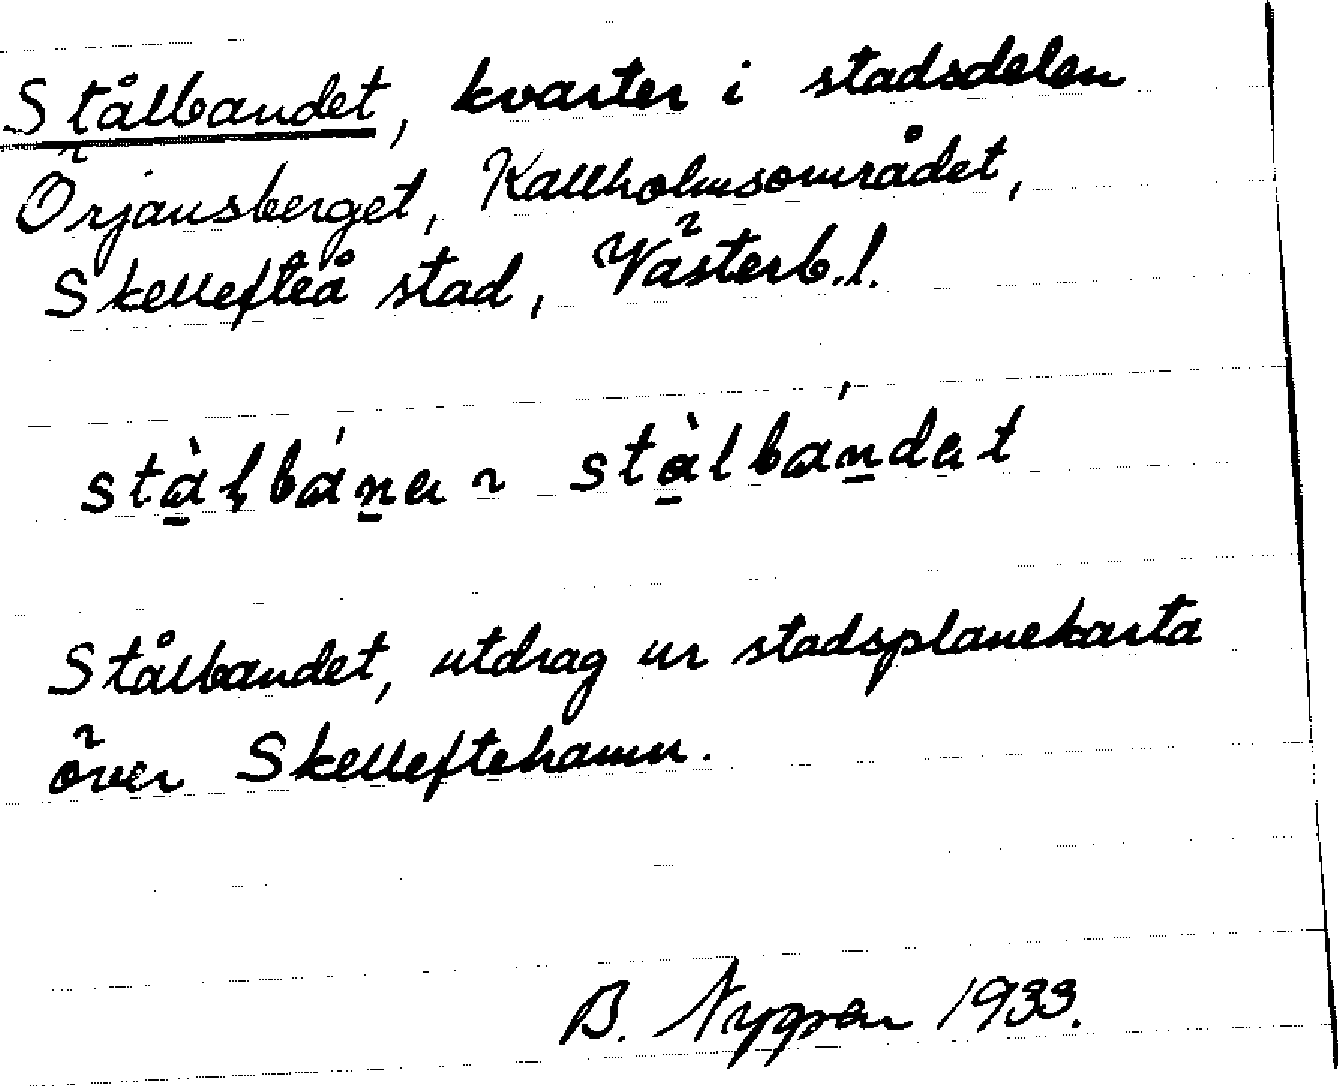 Stålbandet, kvarter i stadsdelen
Örjansberget, Kallholmsområdet,
Skellefteå stad, Västerb.l.
stàlbánα ~ stàlbándαt
Stålbandet, utdrag ur stadsplanekarta
över Skelleftehamn.
B. Nygren 1933.